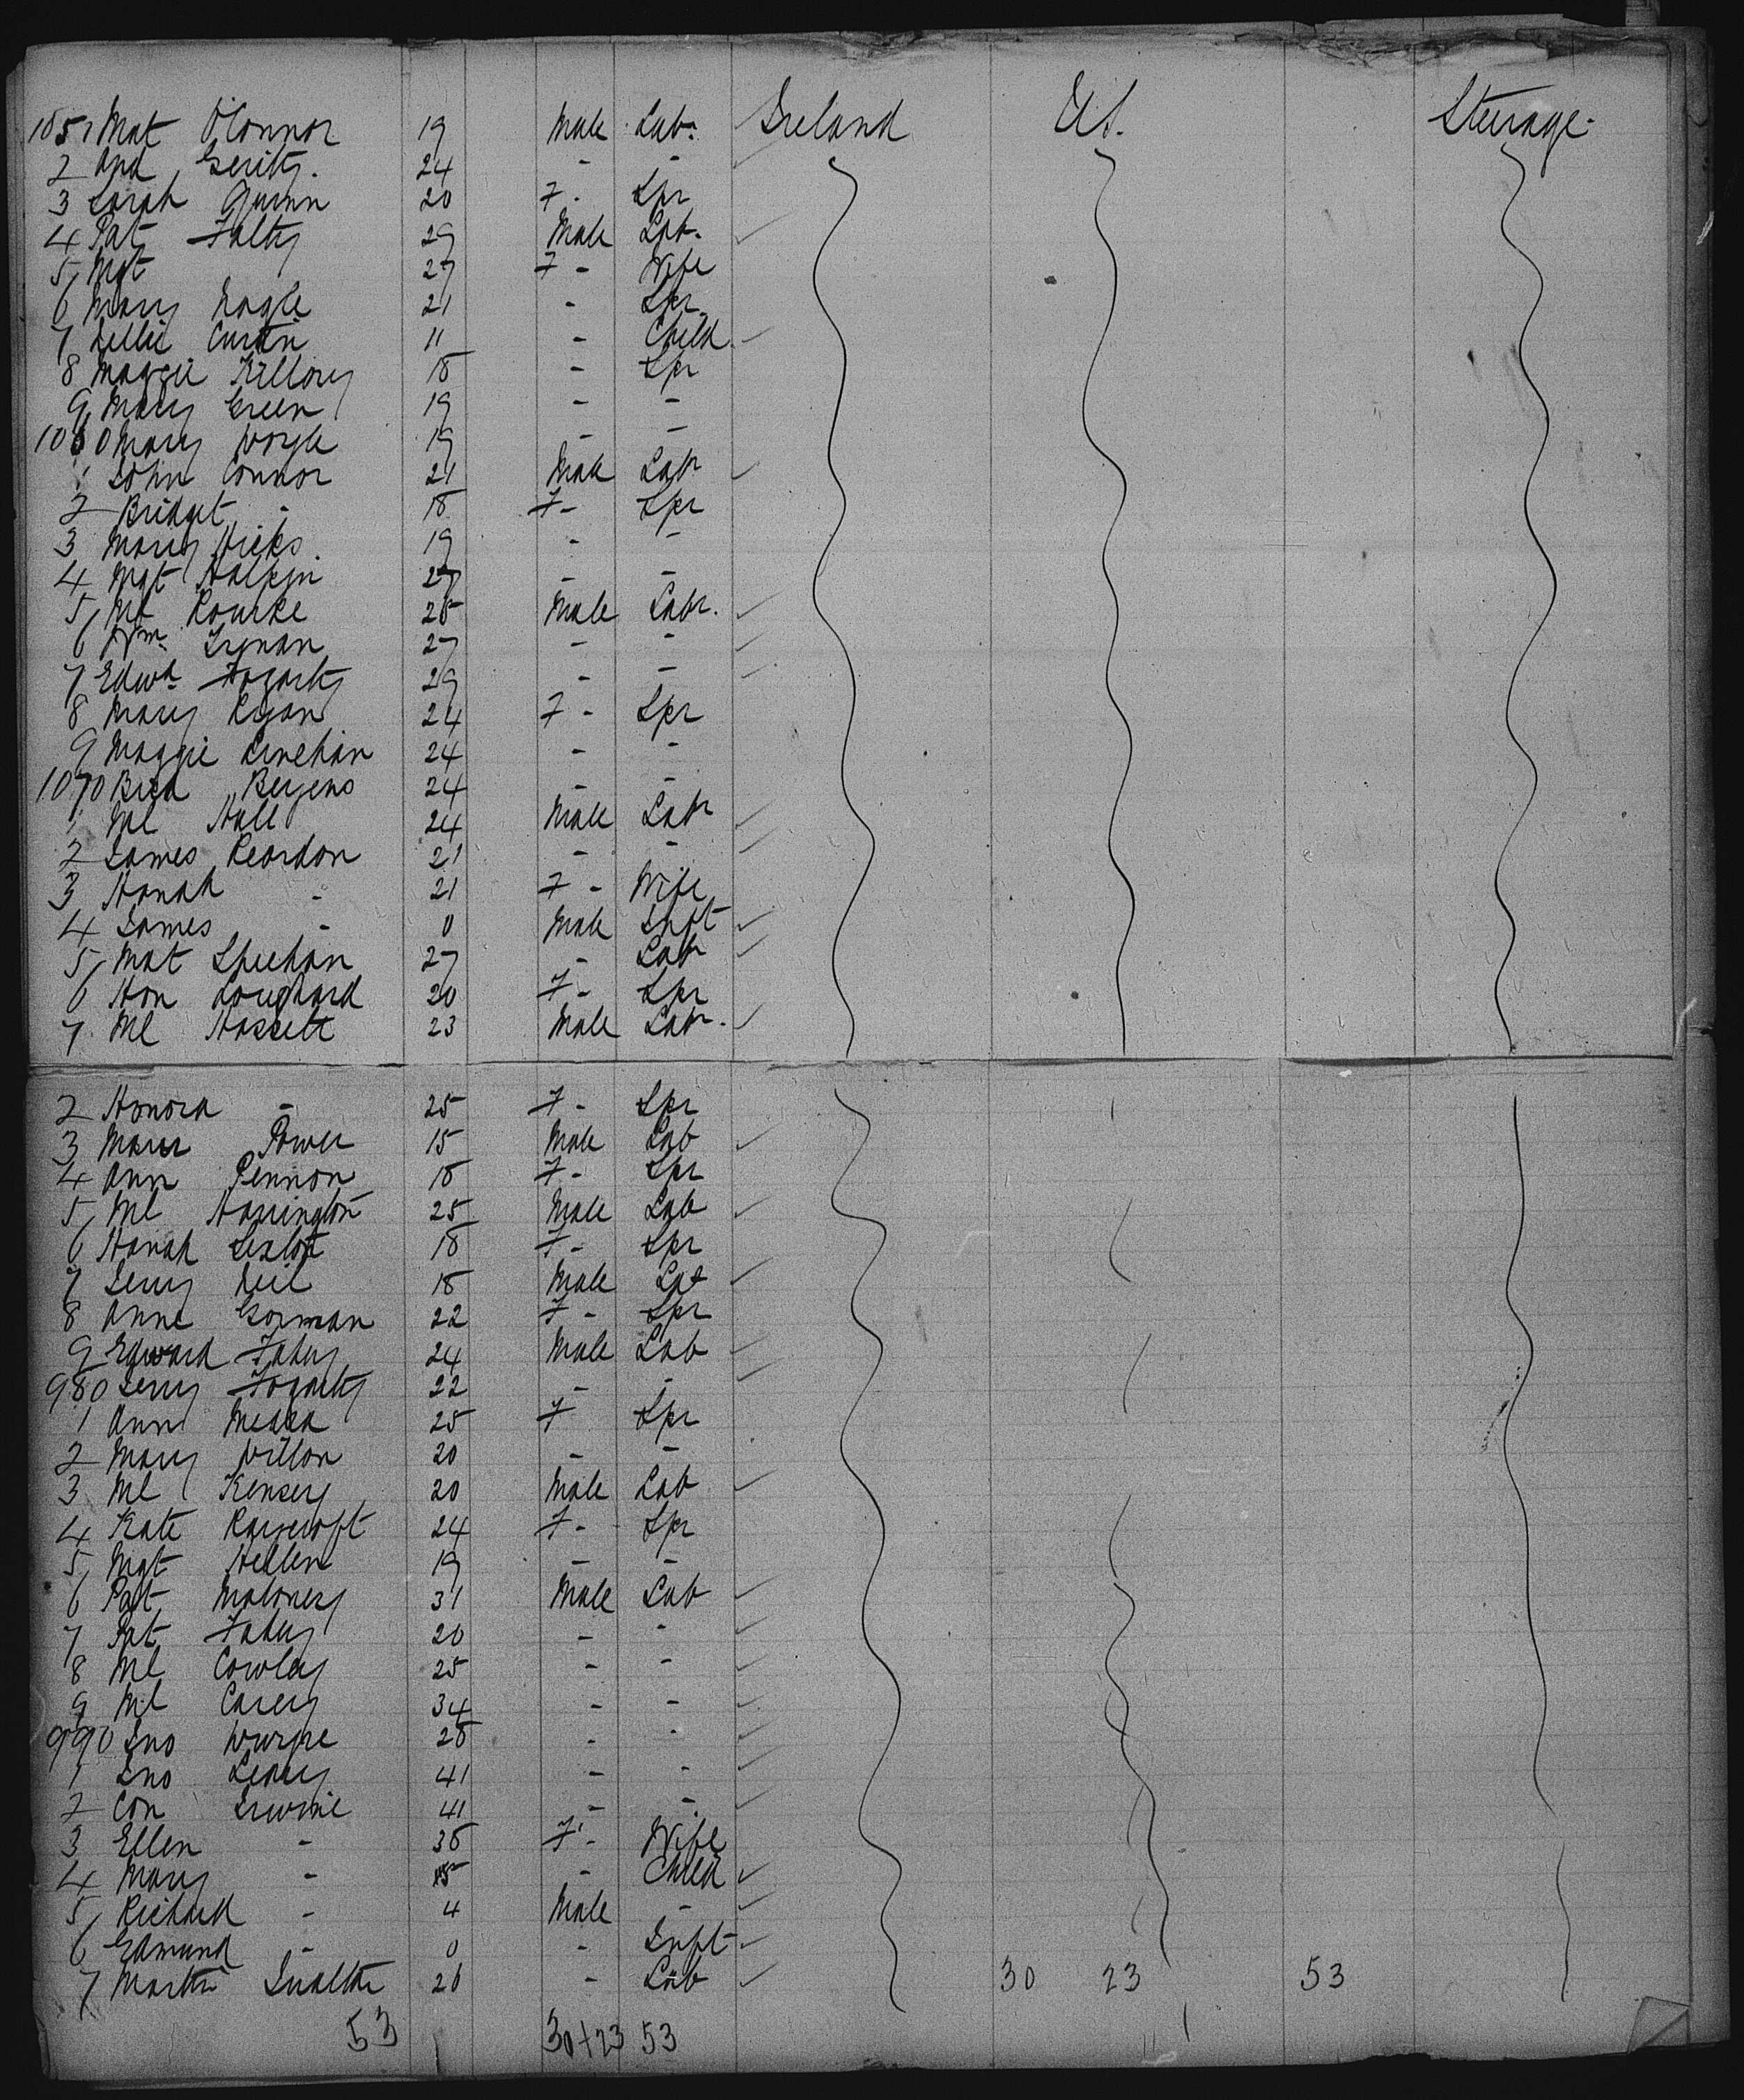 1051 Mat O'Connor 19 Male Labr. Ireland U.S. Steerage
2 And Gerity. 24 - -
3 Sarah Quinn 20 F - Spr
4 Pat Falty 29 Male Lab.
5 Mgt 27 F - Wife
6 Mary Nagle 21 - Spr
7 Nellie Curtin 11 - Child
8 Maggie Killory 18 - Spr
9 Mary Green 19 - -
1060 Mary Doyle 19 - -
1 John Connor 21 Male Labr
2 Bridget - 18 F - Spr
3 Mary Hicks. 19 - -
4 Mgt Halpin 27 - -
5 Ml Rourke 25 Male Labr.
6 Wm. Tynan 27 - -
7 Edwd Fogarty 29 - -
8 Mary Ryan 24 F - Spr
9 Maggie Linehan 24 - -
1070 Brid 24 - -
1 Ml Hall 24 Male Labr
2 James Reardon 21 - -
3 Hanah - 21 F - Wife
4 James - 0 Male Inft
5 Mat Sheehan 27 - Labr
6 Hon 20 F - Spr
7 Ml Hassett 23 Male Labr.
2 Honora - 25 F - Spr
3 Power 15 Male Lab
4 Ann Pennion 18 F - Spr
5 Ml Harrington 25 Male Lab
6 Hanah Sexton 18 F - Spr
7 Jerry Neil 18 Male Lab
8 Anne Gorman 22 F - Spr
9 Edward Fahy 24 Male Lab
980 Jerry Fogarty 22 - -
1 Ann Meara 25 F Spr
2 Mary Dillon 20 - -
3 Ml 20 Male Lab
4 Kate Raycroft 24 F - Spr
5 Mgt Hellen 19 - -
6 Pat Moloney 31 Male Lab
7 Pat Fahy 20 - -
8 Ml Cowley 25 - -
9 Ml Carey 34 - -
990 Jno 28 - -
1 Jno Leary 41 - -
2 Con Irwine 41 - -
3 Ellen - 38 F - Wife
4 Mary - - Child
5 Richard - 4 Male -
6 Edmund - 0 - Inft
7 Martin 26 - Lab 30 23 53
53 30+23 53